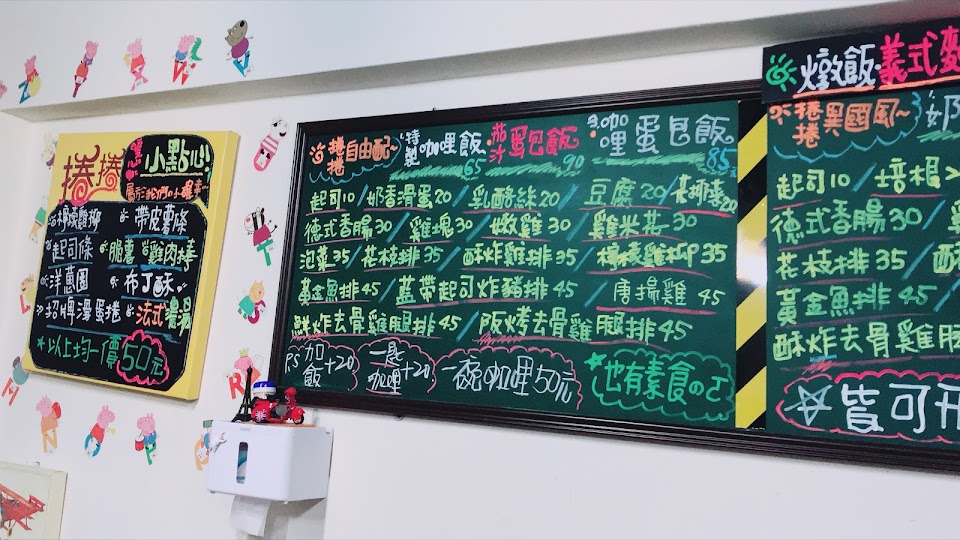 捲捲
小點心
檸檬雞柳 帶皮薯條
起司條 脆薯 雞肉棒
洋蔥圈 布丁酥
招牌湯蛋捲 法式濃湯
以上均一價50元
捲捲自由配~ 特製咖哩飯65 茄汁蛋包飯90 咖哩蛋包飯85元
起司10/奶香滑蛋20/乳酪絲20/豆腐20/
德式香腸30/雞塊30/嫩雞30/雞米花30
泡菜35/花枝排35/酥炸雞排35/檸檬雞柳35
黃金魚排45/藍帶起司炸豬排45/唐揚雞45
鮮炸去骨雞腿排45/阪烤去骨雞腿排45
P.S 加飯+20 一匙咖哩+20 一碗咖哩50元 也有素食の
燉飯 義式
捲捲異國風~ 奶
起司10/培根
德式香腸30/
花枝排35/
黃金魚排45/
酥炸去骨雞腿
皆可